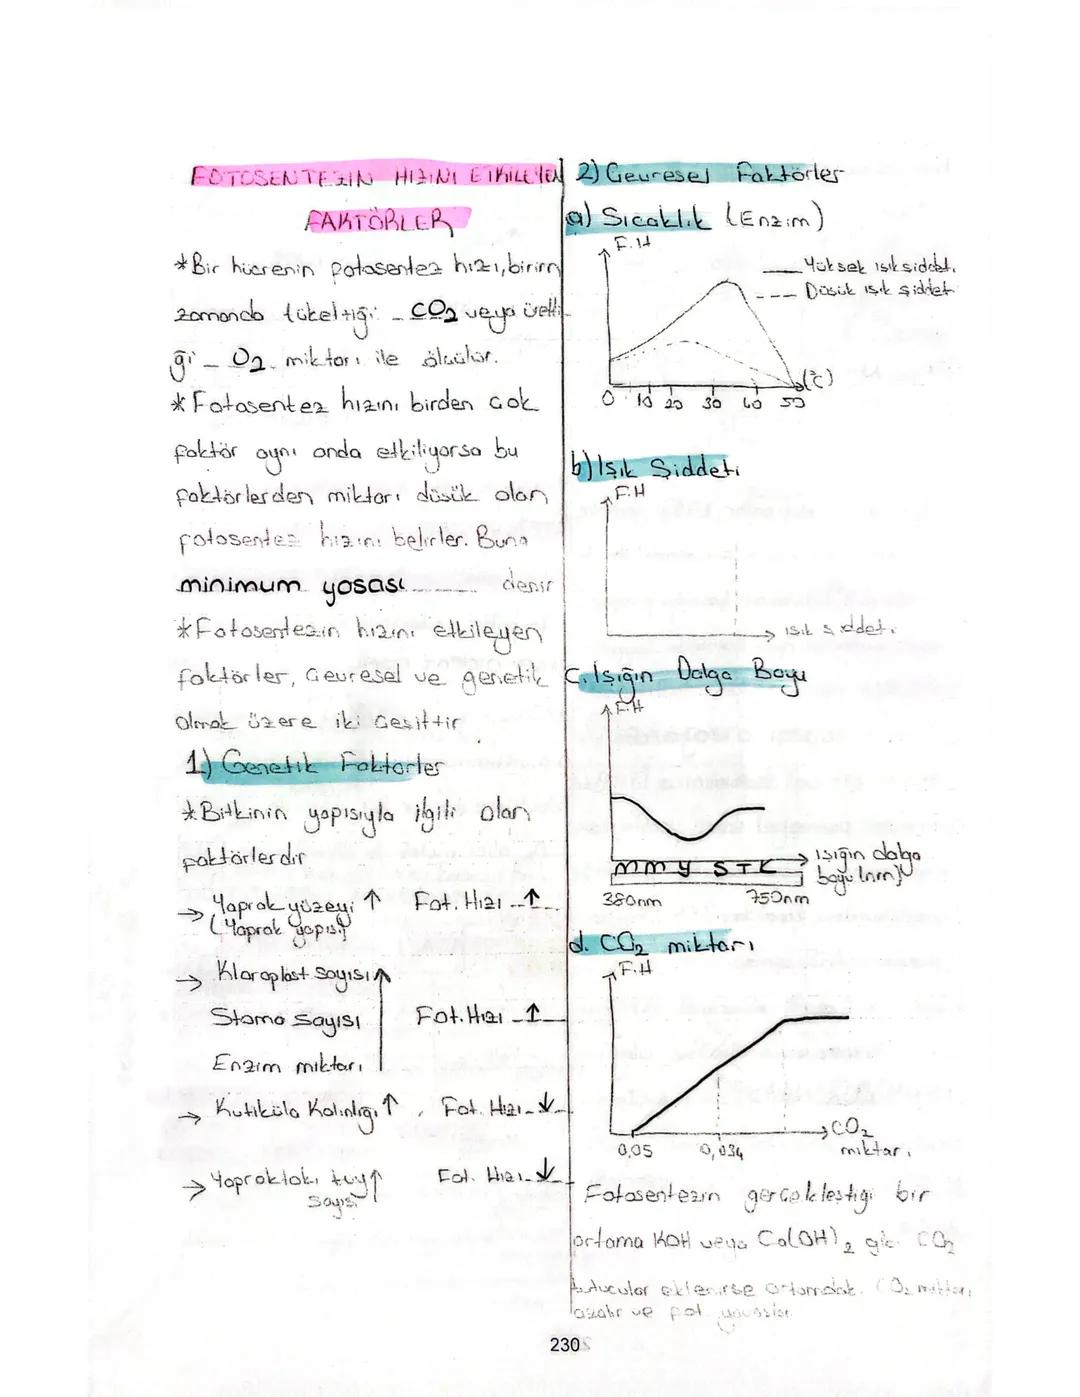 FOTOSENTEZIN HIZINI ETKİLEYEN
FAKTÖRLER
*Bir hücrenin fotosentez hızı, birim
zamanda tükettiği CO2 veya üretti-
ği O2 miktarı ile ölçülür.
*Fotosentez hızını birden çok
faktör aynı anda etkiliyorsa bu
faktörlerden miktarı düşük olan
fotosentez hızını belirler. Buna
minimum yasası denir
*Fotosentezin hızını etkileyen
faktörler, Çevresel ve genetik
olmak üzere iki çeşittir
1.) Genetik Faktörler
*Bitkinin yapısıyla ilgili olan
faktörlerdir
→ Yaprak yüzeyi ↑ Fot. Hızı ↑
(Yaprak yapısı)
→ Kloroplast sayısı ↑
Stoma sayısı Fot. Hızı ↑
Enzim miktarı
→ Kutikula Kalınlığı ↑, Fot. Hızı ↓
→ Yapraktaki tüy ↑ Fot. Hızı ↓
sayısı
2) Çevresel Faktörler
a) Sıcaklık (Enzim)
F.H
Yüksek ışık şiddeti
Düşük ışık şiddet
(°C)
0 10 20 30 40 50
b) Işık Şiddeti
F.H
ışık şiddeti
c. Işığın Dalga Boyu
F.H
M M Y S T K
Işığın dalga
boyu (nm)
380nm 750nm
d. CO2 miktarı
F.H
CO2
miktarı
0,05 0,034
Fotosentezin gerçekleştiği bir
ortama KOH veya Ca(OH)2 gibi CO2
tutucular eklenirse ortamdak. CO2 miktarı
azalır ve fot. yavaşlar
230